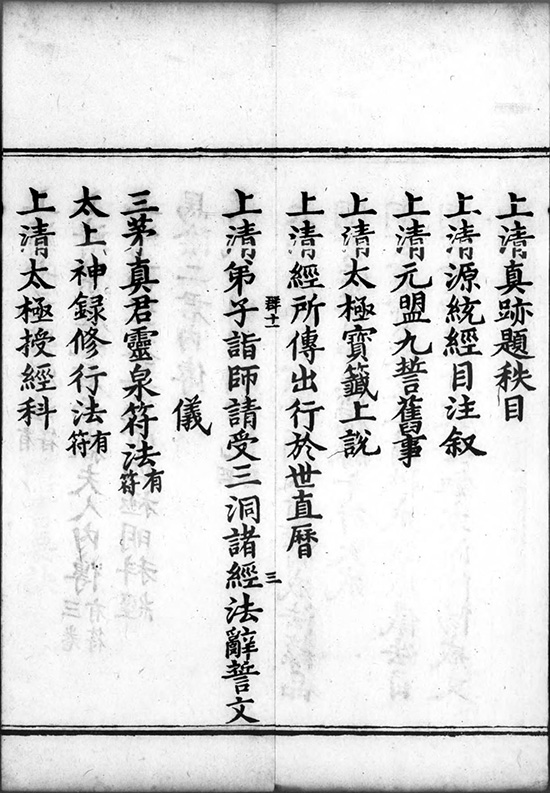 上清真跡題秩目
上清源統經目注叙
上清元盟九誓舊事
上清太極寶籙上說
上清經所傳出行於世直曆
群十
三
上清弟子詣師請受三洞諸經法辭誓文
儀
三茅真君靈泉符法有符
太上神録修行法有符
上清太極授經科